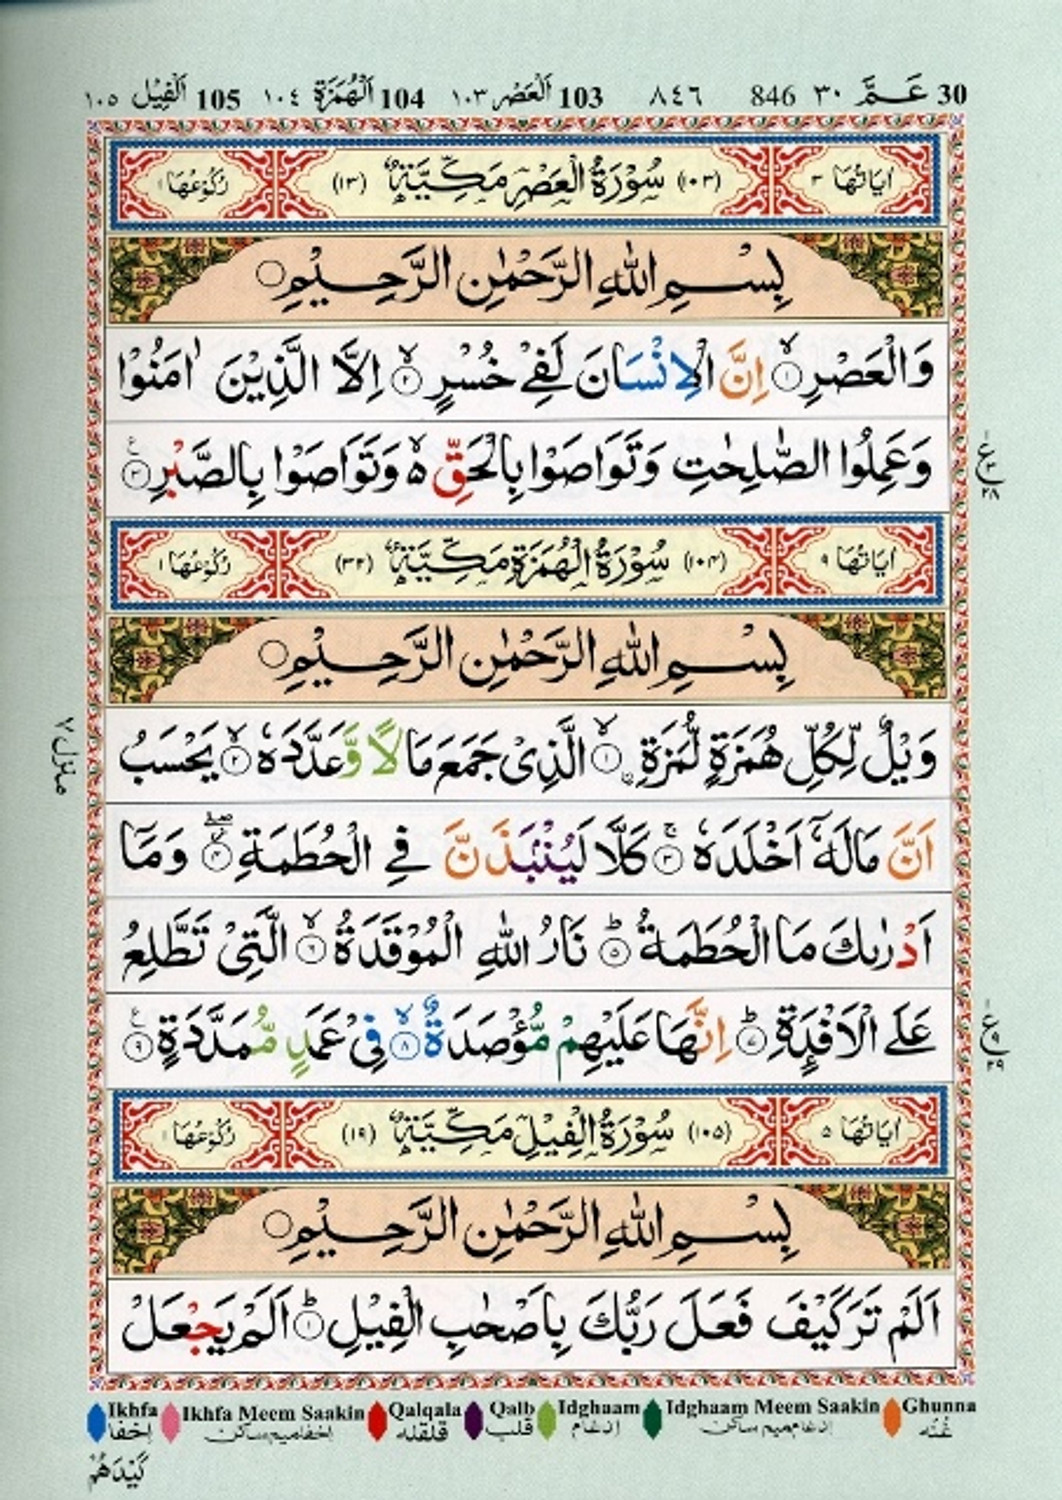 30 عَـمَّ ٣٠ 846 ٨٤٦ 103 اَلْعَصْر ١٠٣ 104 اَلْهُمَزَة ١٠٤ 105 اَلْفِيْل ١٠٥
اٰيَاتُهَا ٣ (١٠٣) سُوْرَةُ الْعَصْرِ مَكِّيَّةٌ (١٣) رُكُوْعُهَا ١
بِسْمِ اللّٰهِ الرَّحْمٰنِ الرَّحِيْمِ
وَالْعَصْرِ ۙ‏﴿١﴾ اِنَّ الْاِنْسَانَ لَفِىْ خُسْرٍ ۙ‏﴿٢﴾ اِلَّا الَّذِيْنَ اٰمَنُوْا
وَعَمِلُوا الصّٰلِحٰتِ وَتَوَاصَوْا بِالْحَقِّ ۙ وَتَوَاصَوْا بِالصَّبْرِ ﴿٣﴾
ع ٣ ٢٨
اٰيَاتُهَا ٩ (١٠٤) سُوْرَةُ الْهُمَزَةِ مَكِّيَّةٌ (٣٢) رُكُوْعُهَا ١
بِسْمِ اللّٰهِ الرَّحْمٰنِ الرَّحِيْمِ
وَيْلٌ لِّكُلِّ هُمَزَةٍ لُّمَزَةٍ ۙ‏﴿١﴾ الَّذِىْ جَمَعَ مَالًا وَّعَدَّدَهٗ ۙ‏﴿٢﴾ يَحْسَبُ
مَنزل ٧
اَنَّ مَالَهٗۤ اَخْلَدَهٗ ۚ‏﴿٣﴾ كَلَّا لَيُنْۢبَذَنَّ فِى الْحُطَمَةِ ۖ‏﴿٤﴾ وَمَاۤ
اَدْرٰىكَ مَا الْحُطَمَةُ ؕ‏﴿٥﴾ نَارُ اللّٰهِ الْمُوْقَدَةُ ۙ‏﴿٦﴾ الَّتِىْ تَطَّلِعُ
عَلَى الْاَفْـِٕدَةِ ؕ‏﴿٧﴾ اِنَّهَا عَلَيْهِمْ مُّؤْصَدَةٌ ۙ‏﴿٨﴾ فِىْ عَمَدٍ مُّمَدَّدَةٍ ﴿٩﴾
ع ٩ ٢٩
اٰيَاتُهَا ٥ (١٠٥) سُوْرَةُ الْفِيْلِ مَكِّيَّةٌ (١٩) رُكُوْعُهَا ١
بِسْمِ اللّٰهِ الرَّحْمٰنِ الرَّحِيْمِ
اَلَمْ تَرَ كَيْفَ فَعَلَ رَبُّكَ بِاَصْحٰبِ الْفِيْلِ ؕ‏﴿١﴾ اَلَمْ يَجْعَلْ
Ikhfa Ikhfa Meem Saakin Qalqala Qalb Idghaam Idghaam Meem Saakin Ghunna
اِخفا اِخفا میم ساکن قلقله قلب اِدغام اِدغام میم ساکن غُنّه
كَيْدَهُمْ